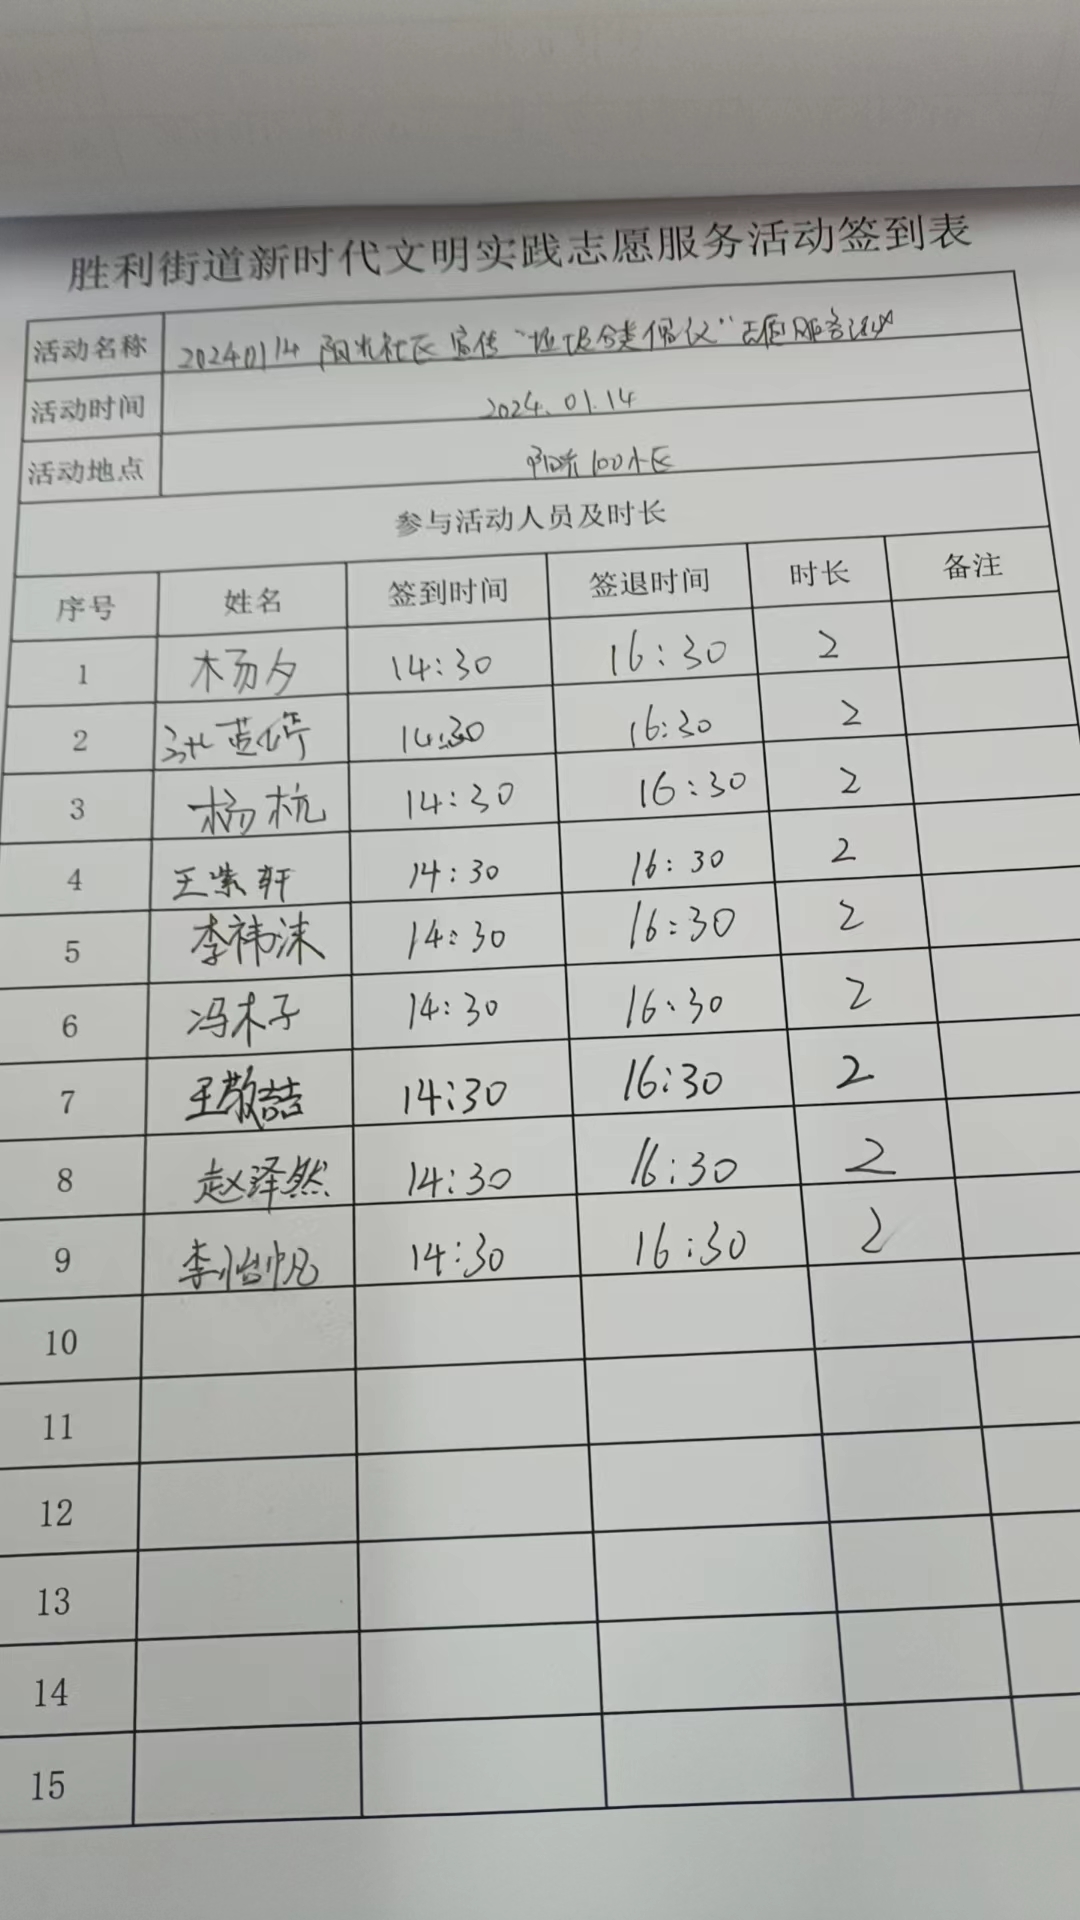 胜利街道新时代文明实践志愿服务活动签到表
活动名称 20240114 阳光社区宣传"垃圾分类倡议"志愿服务活动
活动时间 2024.01.14
活动地点 阳光100小区
参与活动人员及时长
序号 姓名 签到时间 签退时间 时长 备注
1 杨夕 14:30 16:30 2
2 14:30 16:30 2
3 杨杭 14:30 16:30 2
4 王紫轩 14:30 16:30 2
5 李祎沫 14:30 16:30 2
6 冯木子 14:30 16:30 2
7 王敬喆 14:30 16:30 2
8 赵泽然 14:30 16:30 2
9 李怡帆 14:30 16:30 2
10
11
12
13
14
15